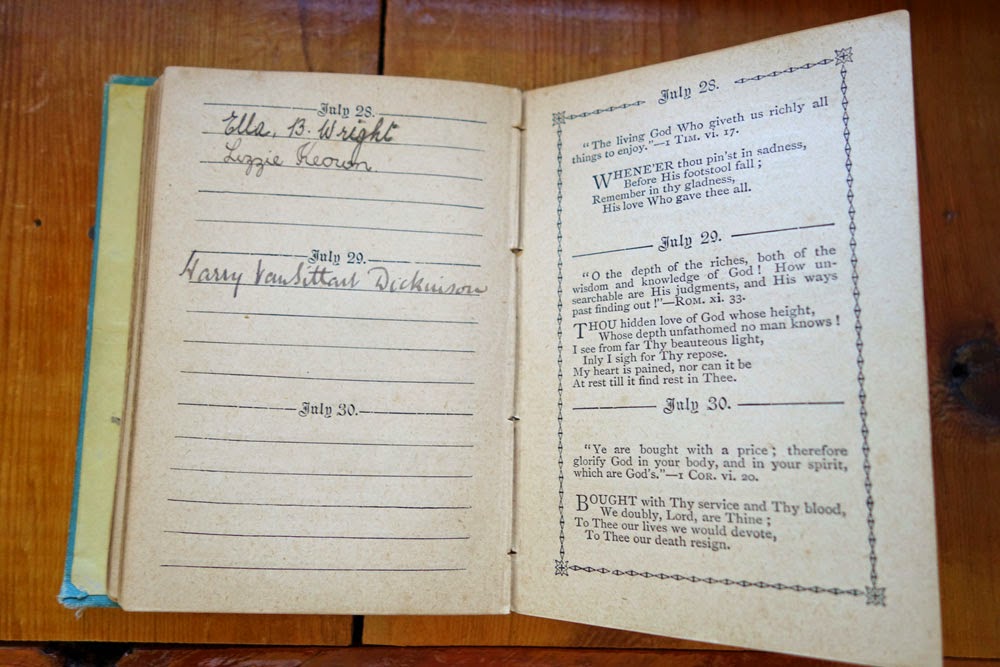 July 28.
Ella. B. Wright
Lizzie Keown
July 29.
Harry VanSittart Dickinson
July 30.
July 28.
"The living God Who giveth us richly all
things to enjoy."—1 TIM. vi. 17.
WHENE'ER thou pin'st in sadness,
Before His footstool fall;
Remember in thy gladness,
His love Who gave thee all.
July 29.
"O the depth of the riches, both of the
wisdom and knowledge of God! How un-
searchable are His judgments, and His ways
past finding out!"—ROM. xi. 33.
THOU hidden love of God whose height,
Whose depth unfathomed no man knows!
I see from far Thy beauteous light,
Inly I sigh for Thy repose.
My heart is pained, nor can it be
At rest till it find rest in Thee.
July 30.
"Ye are bought with a price; therefore
glorify God in your body, and in your spirit,
which are God's."—1 COR. vi. 20.
BOUGHT with Thy service and Thy blood,
We doubly, Lord, are Thine;
To Thee our lives we would devote,
To Thee our death resign.